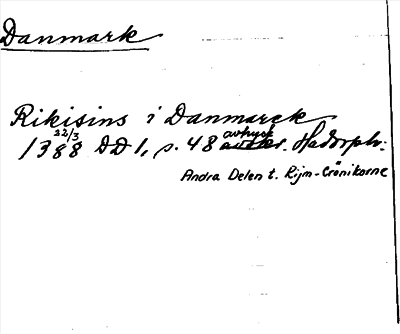 Danmark
Rikisins i Danmarck
22/3 avtryck
1388 DD 1, s. 48 Hadorph:
Andra Delen t. Rijm-Crönikorne